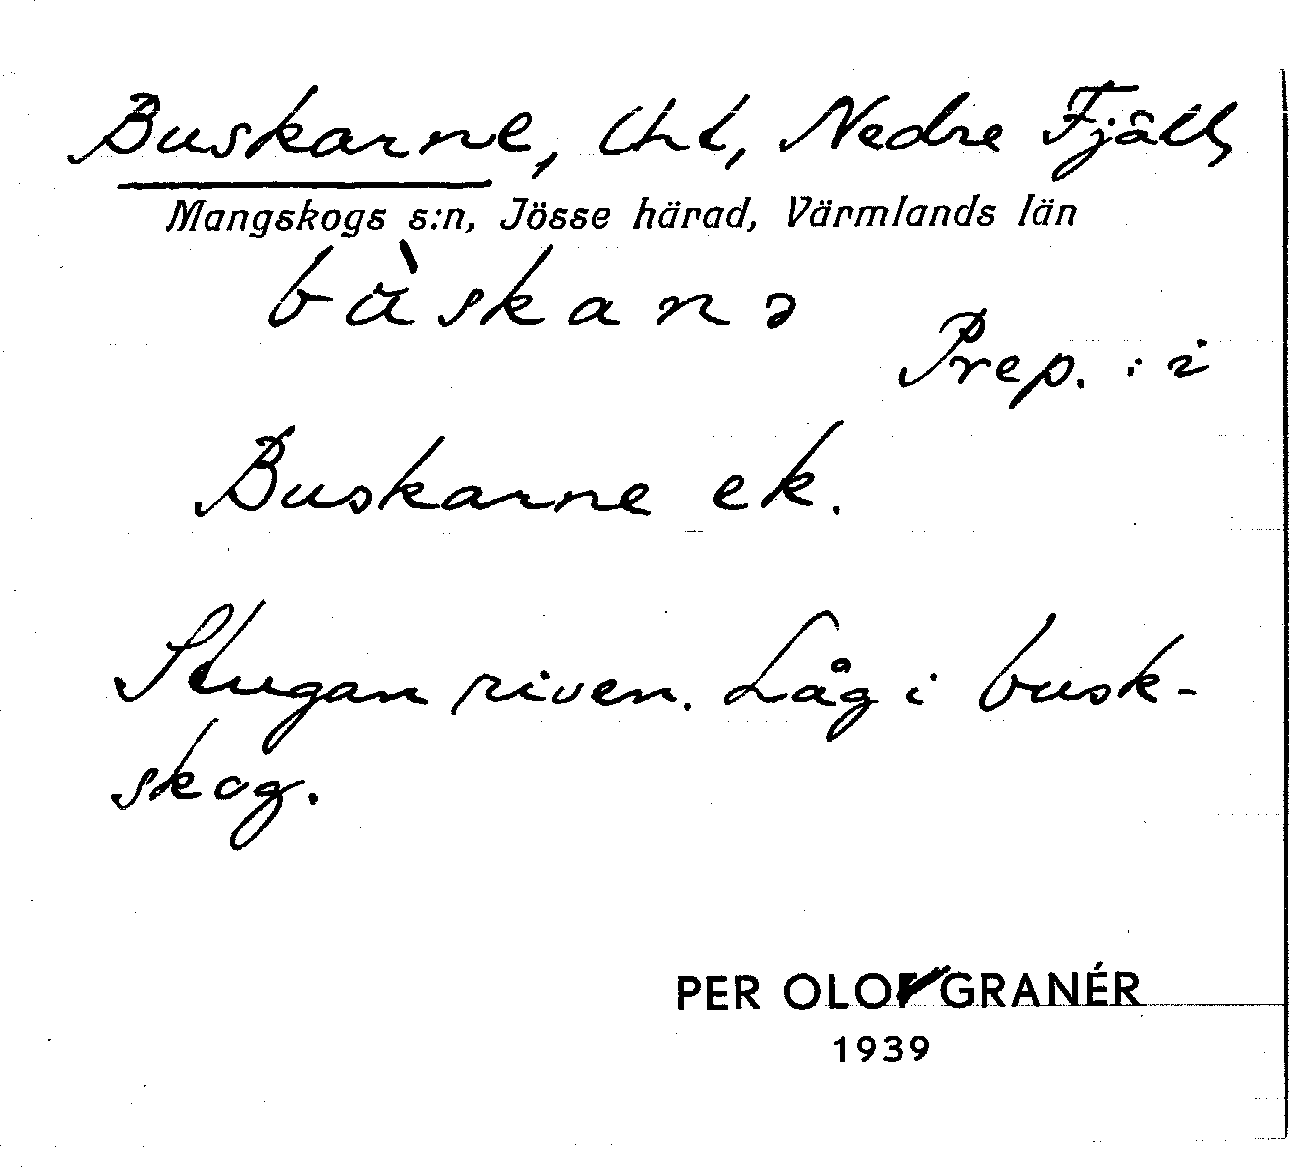 Buskarne, lht, Nedre Fjäll,
Mangskogs s:n, Jösse härad, Värmlands län
bùskanə
Prep. : i
Buskarne ek.
Stugan riven. Låg i busk-
skog.
PER OLOF GRANÉR
1939